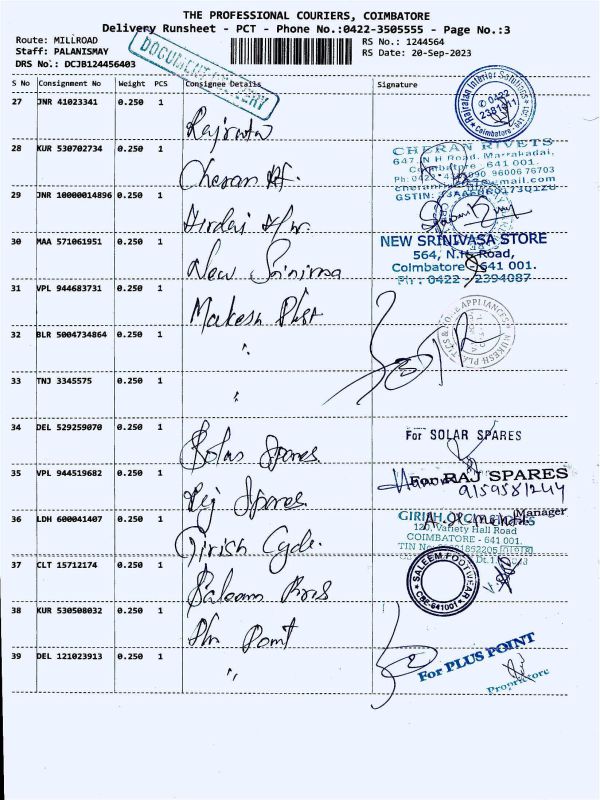 THE PROFESSIONAL COURIERS, COIMBATORE
Delivery Runsheet - PCT - Phone No.:0422-3505555 - Page No.:3
Route: MILLROAD
RS No.: 1244564
Staff: PALANISMAY
RS Date: 20-Sep-2023
DRS No.: DCJB124456403
DOCUMENT DELIVERY
S No Consignment No Weight PCS Consignee Details Signature
27 JNR 41023341 0.250 1
Rajrata
Rajrajan Interior Solutions
0422
2381911
Coimbatore - 641 001.
28 KUR 530702734 0.250 1
Cheran
CHERAN RIVETS
647, N H Road, Marrakadai,
Coimbatore - 641 001.
96006 76703
GSTIN:
29 JNR 10000014896 0.250 1
30 MAA 571061951 0.250 1
New Srinivasa
NEW SRINIVASA STORE
564, N.H. Road,
Coimbatore - 641 001.
Ph : 0422 - 2394087
31 VPL 944683731 0.250 1
Mukesh Plast
32 BLR 5004734864 0.250 1
"
33 TNJ 3345575 0.250 1
"
34 DEL 529259070 0.250 1
Solar Spares
For SOLAR SPARES
35 VPL 944519682 0.250 1
Raj Spares
For RAJ SPARES
9159581244
Manager
36 LDH 600041407 0.250 1
Girish Cycle.
GIRISH CYCLE
120, Variety Hall Road
COIMBATORE - 641 001.
37 CLT 15712174 0.250 1
Saleem Bros
SALEEM FOOTWEAR
CBE-641001
38 KUR 530508032 0.250 1
Plus Point
39 DEL 121023913 0.250 1
"
For PLUS POINT
Proprietore